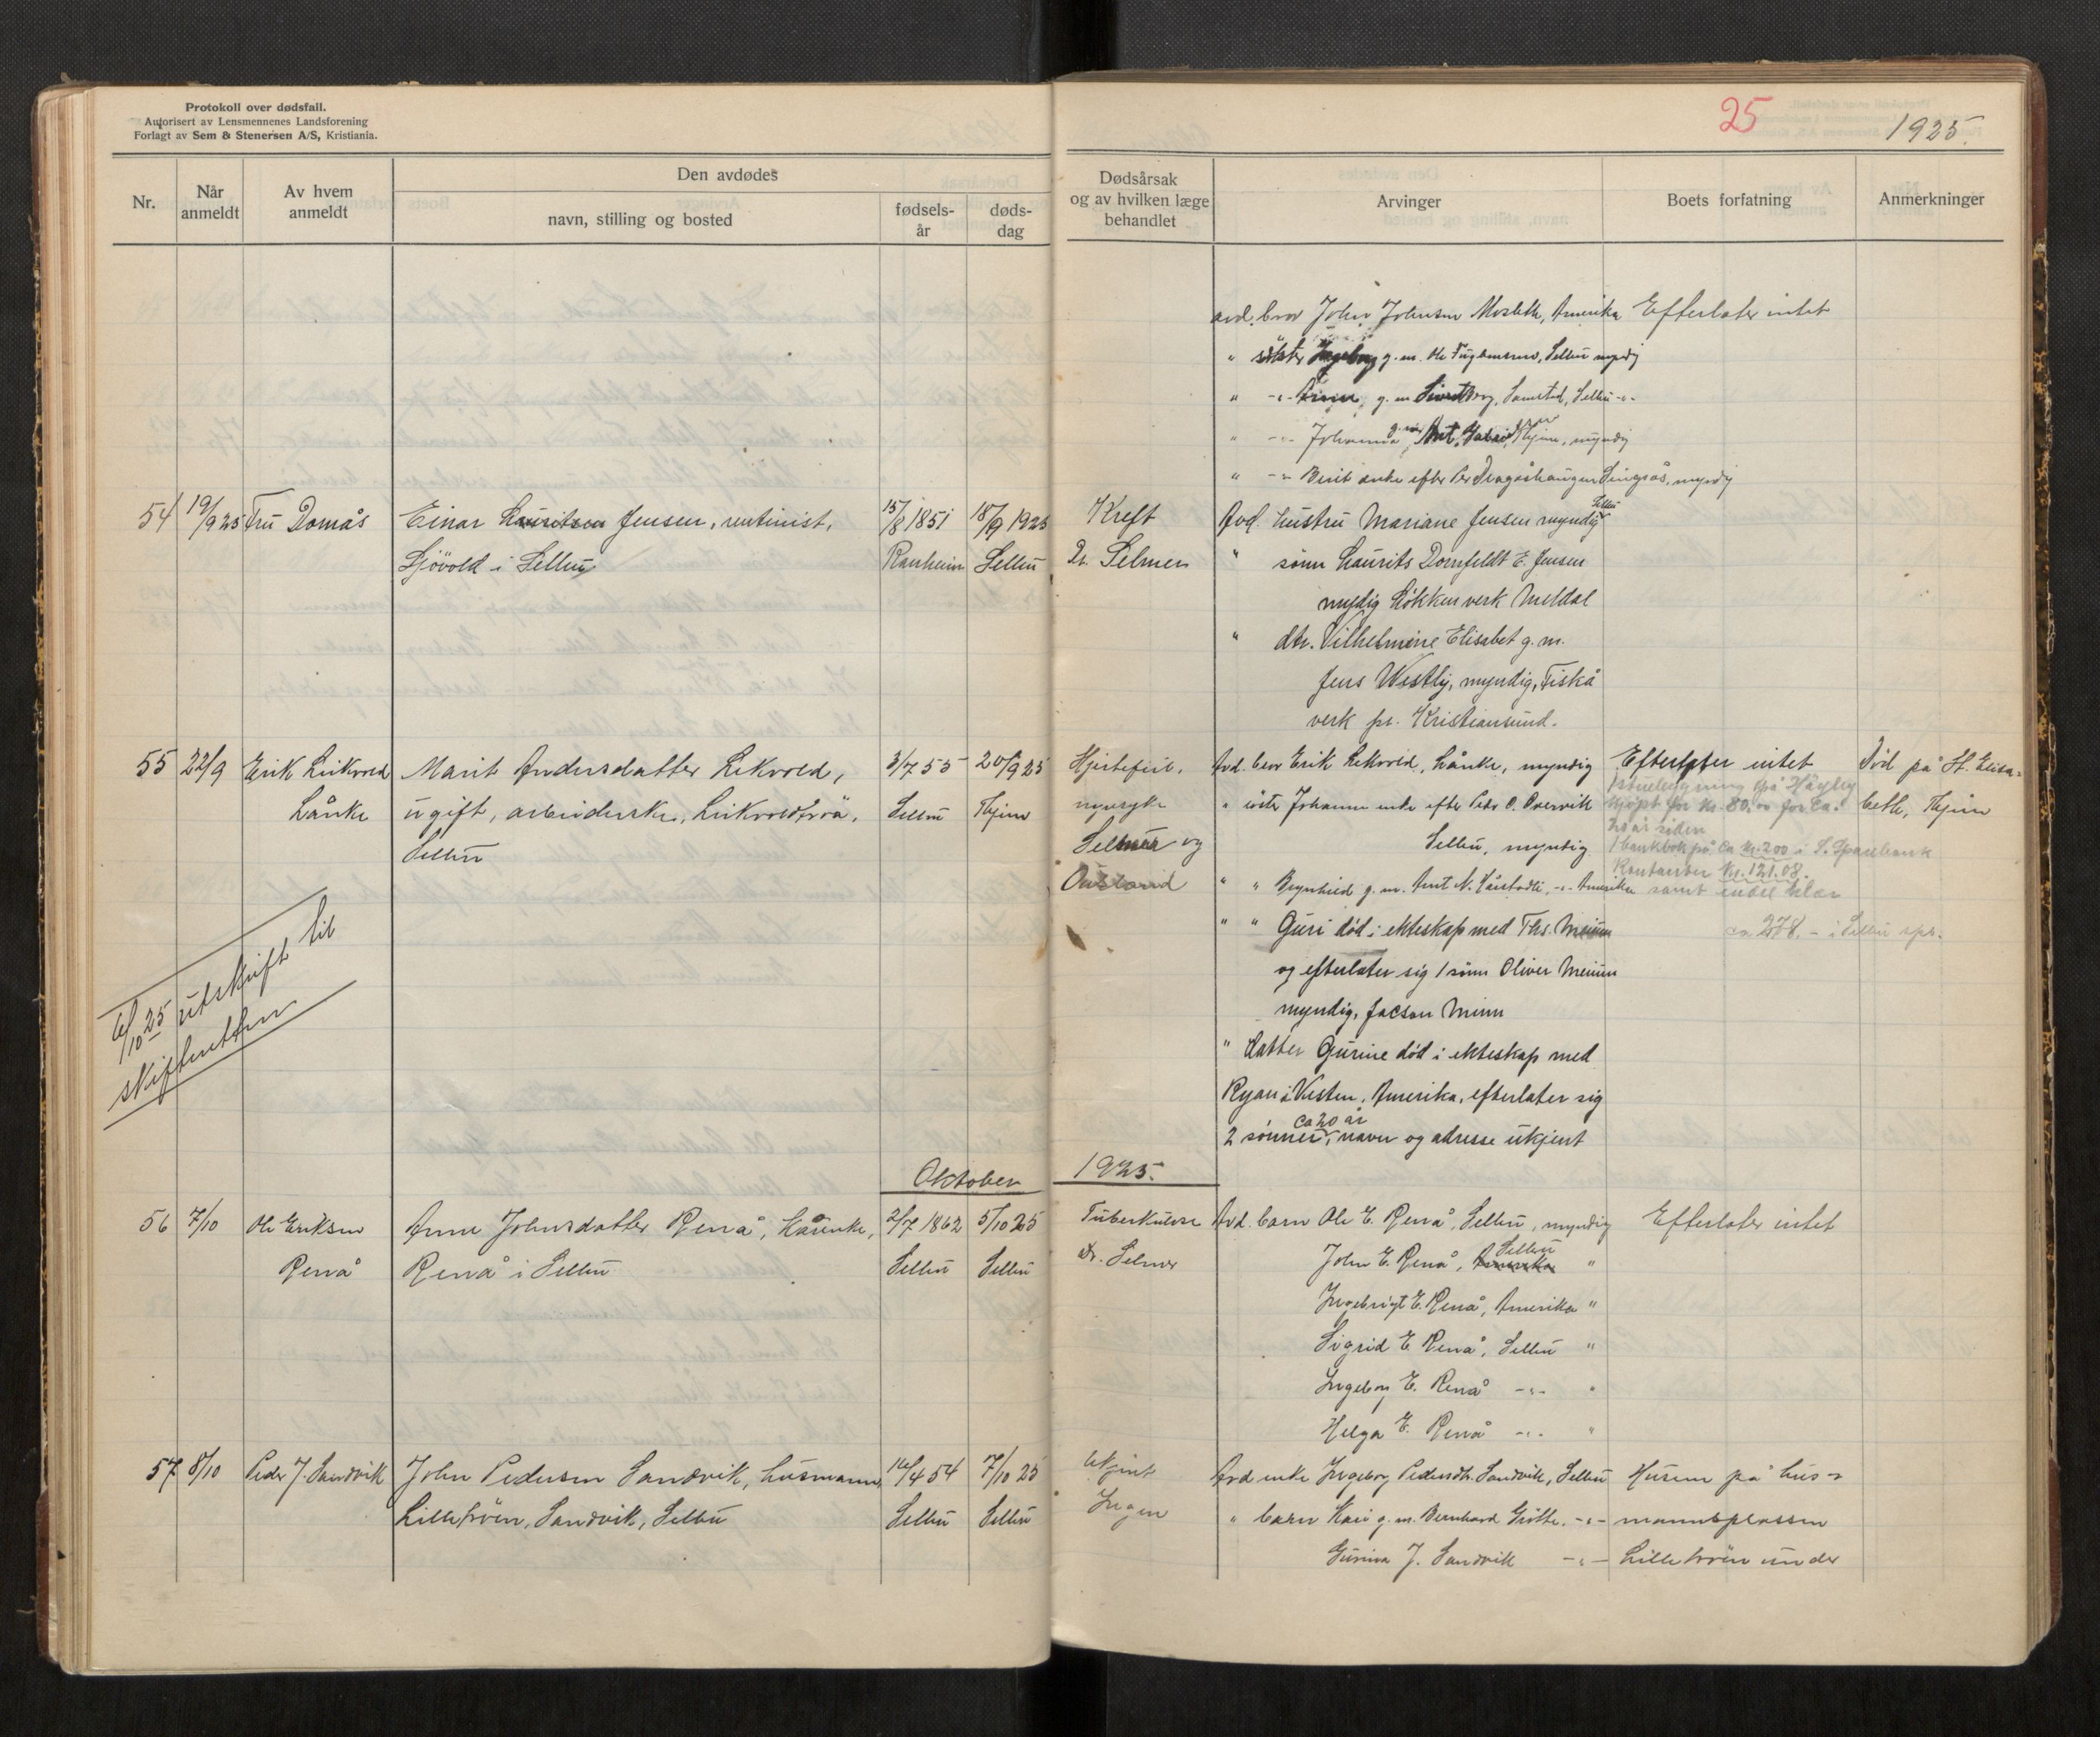 Protokoll over dødsfall.
Autorisert av Lensmennenes Landsforening
Forlagt av Sem & Stenersen A/S, Kristiania.
25
1925.
Nr.
Når anmeldt
Av hvem anmeldt
Den avdødes
navn, stilling og bosted
fødsels-år
døds-dag
Dødsårsak og av hvilken læge behandlet
Arvinger
Boets forfatning
Anmerkninger
avd. bror John Johnsen Mosleth, Amerika Efterlater intet
" søster Ingeborg g. m. Ole Fuglemsmo, Selbu myndig
" -"- Anne, g. m. Sivert Borg, Samstad, Selbu -"-
" -"- Johanna g. m. Arnt, Thjem, myndig
" -"- Berit enke efter Per Dragåshaugen Singsås, myndig
54 19/9 25 Fru Domås Einar Lauritsen Jensen, rentinist, 15/8 1851 18/9 1925 Kreft Avd. hustru Mariane Jensen myndig Selbu
Sjøvold i Selbu Ranheim Selbu Dr. Selmer " sønn Laurits Dornfeldt E. Jensen
myndig Løkken verk Meldal
" dtr. Vilhelmine Elisabet g. m.
Jens Westly, myndig, Fiskå
verk pr. Kristiansund.
55 22/9 Erik Likvold Marit Andersdatter Lekvold, 3/7 55 20/9 25 Hjertefeil, Avd. bror Erik Lekvold, Lånke, myndig Efterlater intet Død på St. Elisa-
Lånke ugift, arbeiderske, Likvoldtrøa, Selbu Thjem nyresyke " søster Johanna enke efter Peder O. Overvik kjøpt for kr. 80.00 for ca. beth, Thjem
20 år siden
Selbu Selmer og Selbu, myndig 1 bankbok på ca kr. 200 i S. Sparebank
Kontanter kr. 121.08.
Ousland " " Brynhild g. m. Arnt N. -"- Amerika samt endel klær
" " Guri død i ekteskap med Ths. Meium ca. 278.- i Selbu spb.
og efterlater sig 1 sønn Oliver Meium
myndig, Jacson Minn
" Datter Gurine død i ekteskap med
Ryan i Vesten, Amerika, efterlater sig
2 sønner, ca 20 år navn og adresse ukjent
6/10 25 utskrift til
skifteretten
Oktober 1925.
56 7/10 Ole Eriksen Anne Johnsdatter Renå, kårenke, 2/7 1862 5/10 25 Tuberkulose Avd. barn Ole E. Renå, Selbu, myndig Efterlater intet
Renå Renå i Selbu Selbu Selbu Dr. Selmer John E. Renå, Amerika Selbu "
Ingebrigt E. Renå, Amerika "
Sigrid E. Renå, Selbu "
Ingeborg E. Renå -"- "
Helga E. Renå -"- "
57 8/10 Peder J. Sandvik John Pedersen Sandvik, husmann, 16/4 54 7/10 25 Ukjent Avd enke Ingeborg Pedersdtr. Sandvik, Selbu Husene på hus-
Lilletrøen, Sandvik, Selbu Selbu Selbu Ingen " barn Kari g. m. Bernhard Grøtte, -"- mannsplassen
Gurine J. Sandvik -"- Lilletrøen under